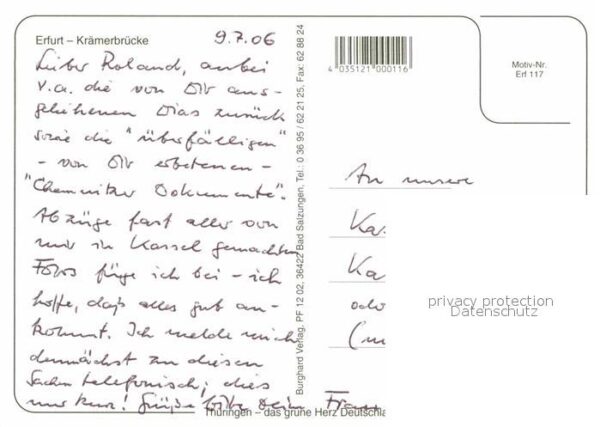 Erfurt – Krämerbrücke
9.7.06
Lieber Roland, anbei
v.a. die von Dir aus-
geliehenen Dias zurück
sowie die "überfälligen"
- von Dir erbetenen -
"Chemnitzer Dokumente".
Abzüge fast aller von
mir in Kassel gemachten
Fotos füge ich bei - ich
hoffe, daß alles gut an-
kommt. Ich melde mich
demnächst zu diesen
Sachen telefonisch; dies
nur kurz! Grüße bitte Deine Frau
Thüringen – das grüne Herz Deutschla
Burghard Verlag, PF 12 02, 36422 Bad Salzungen, Tel.: 0 36 95 / 62 21 25, Fax: 62 88 24
4 035121 000116
Motiv-Nr.
Erf 117
An unsere
Kas
Ka
oder
privacy protection
Datenschutz